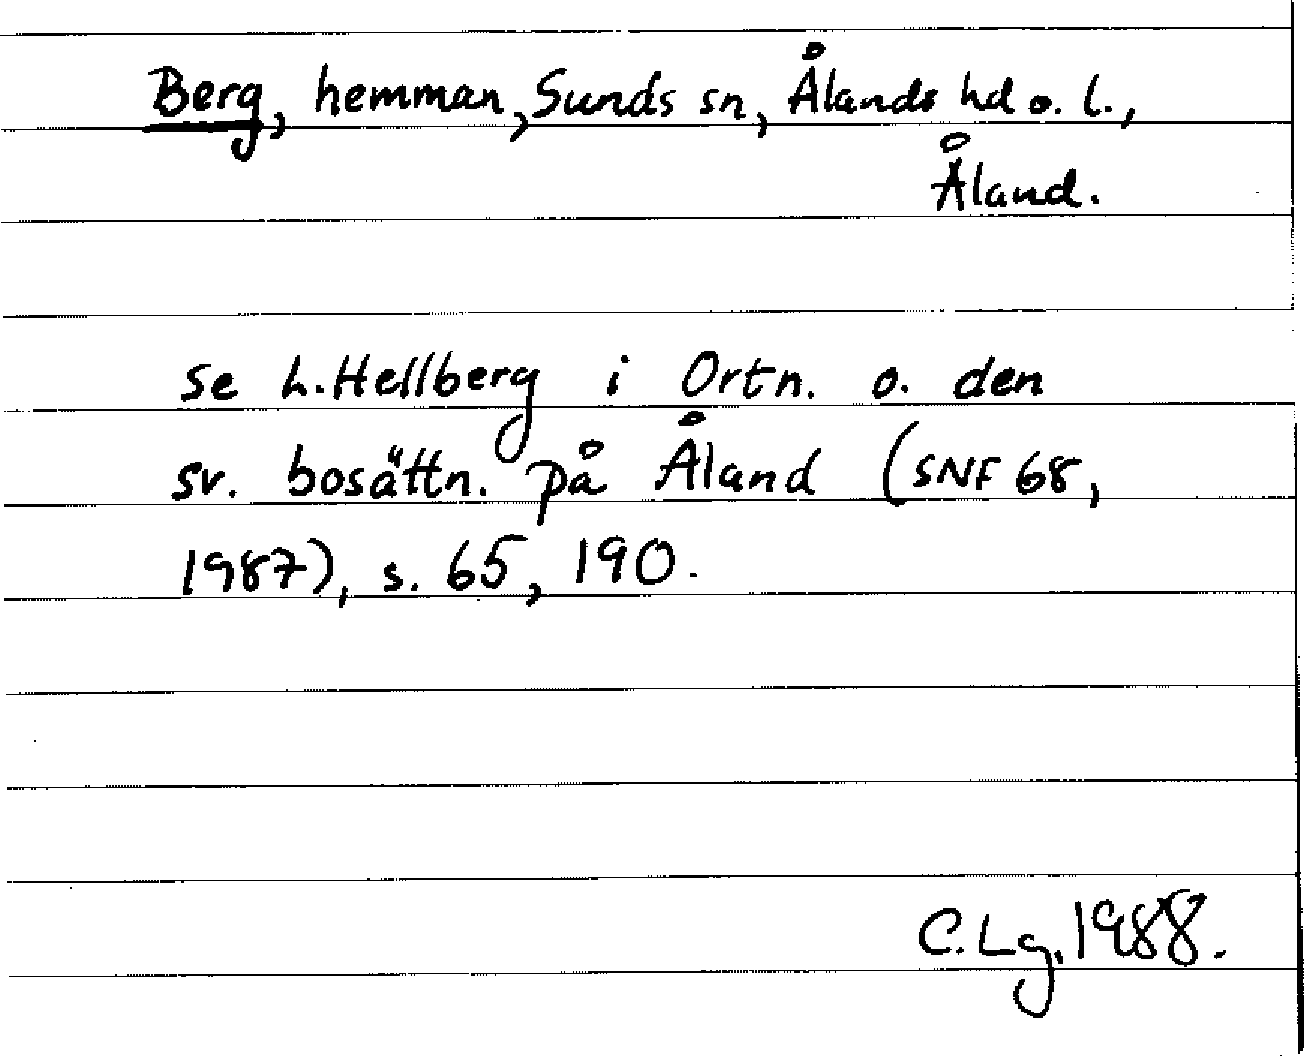 Berg, hemman, Sunds sn, Ålands hd o. l.,
Åland.
se L. Hellberg i Ortn. o. den
sv. bosättn. på Åland (SNF 68,
1987), s. 65, 190.
C. Lg. 1988.